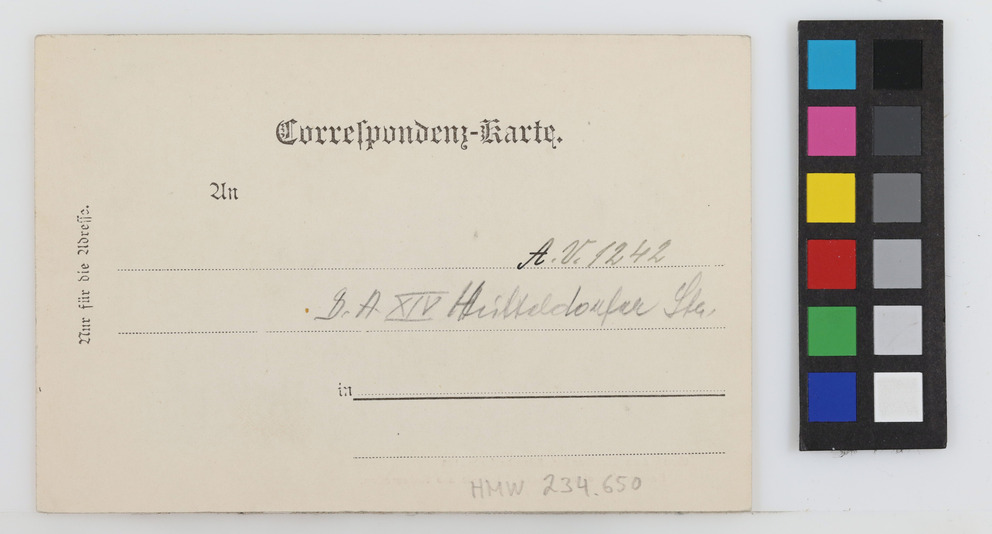 Correspondenz-Karte.
An
Nur für die Adresse.
A. V. 1242
D. A XIV Hütteldorfer Str.
in
HMW 234.650